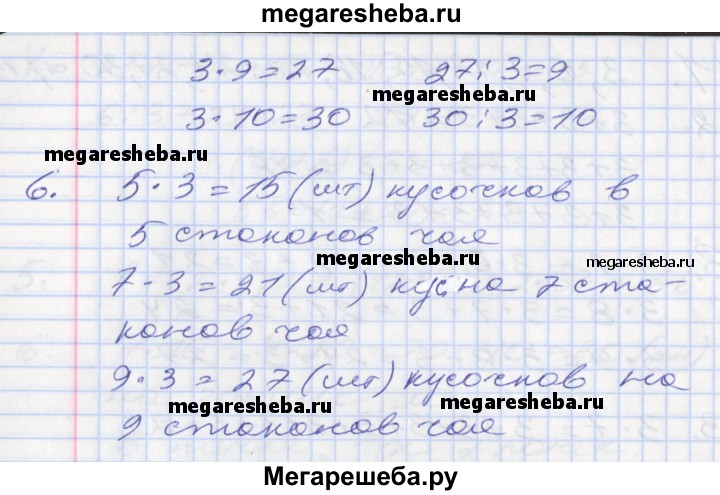 megaresheba.ru
3·9=27 27:3=9
megaresheba.ru
3·10=30 30:3=10
megaresheba.ru
6. 5·3=15(шт) кусочков в
5 стаканов чая
megaresheba.ru
7·3=21(шт) кус. на 7 ста-
канов чая
9·3=27(шт) кусочков на
megaresheba.ru megaresheba.ru
9 стаканов чая
Мегарешеба.ру